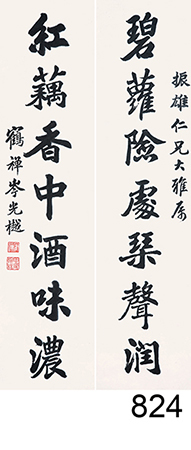 振雄仁兄大雅屬
碧蘿陰處琴聲潤
紅藕香中酒味濃
鶴禪岑光樾
824